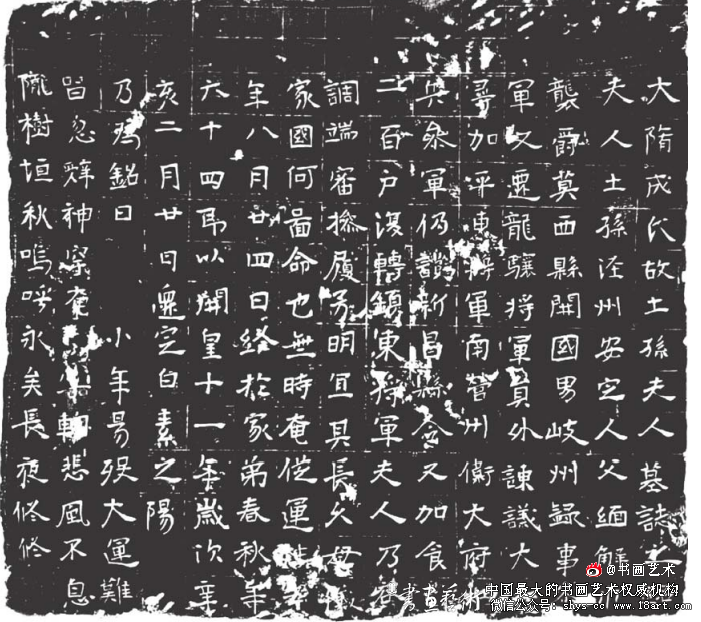 大隋成氏故土孫夫人墓誌
夫人土孫涇州安定人父緬解
襲爵莫西縣開國男岐州録事
軍又遷龍驤將軍員外諫議大
尋加平東將軍南營州衛大府
兵叅軍仍新昌縣令又加食
二百户後轉鎮東將軍夫人乃
調端審操履分明宜具長久毋
家國何啚命也無時奄從運
年八月廿四日終於家弟春秋年
六十四耶以開皇十一年歲次辛
亥二月廿日遷定白素之陽
乃為銘曰 小年易殁大運難
留忽辤神奄轜悲風不息
隴樹垣秋嗚呼永矣長夜修修
@书画艺术
中国最大的书画艺术权威机构
微信公众号：shys-cc www.18art.com
书画艺术